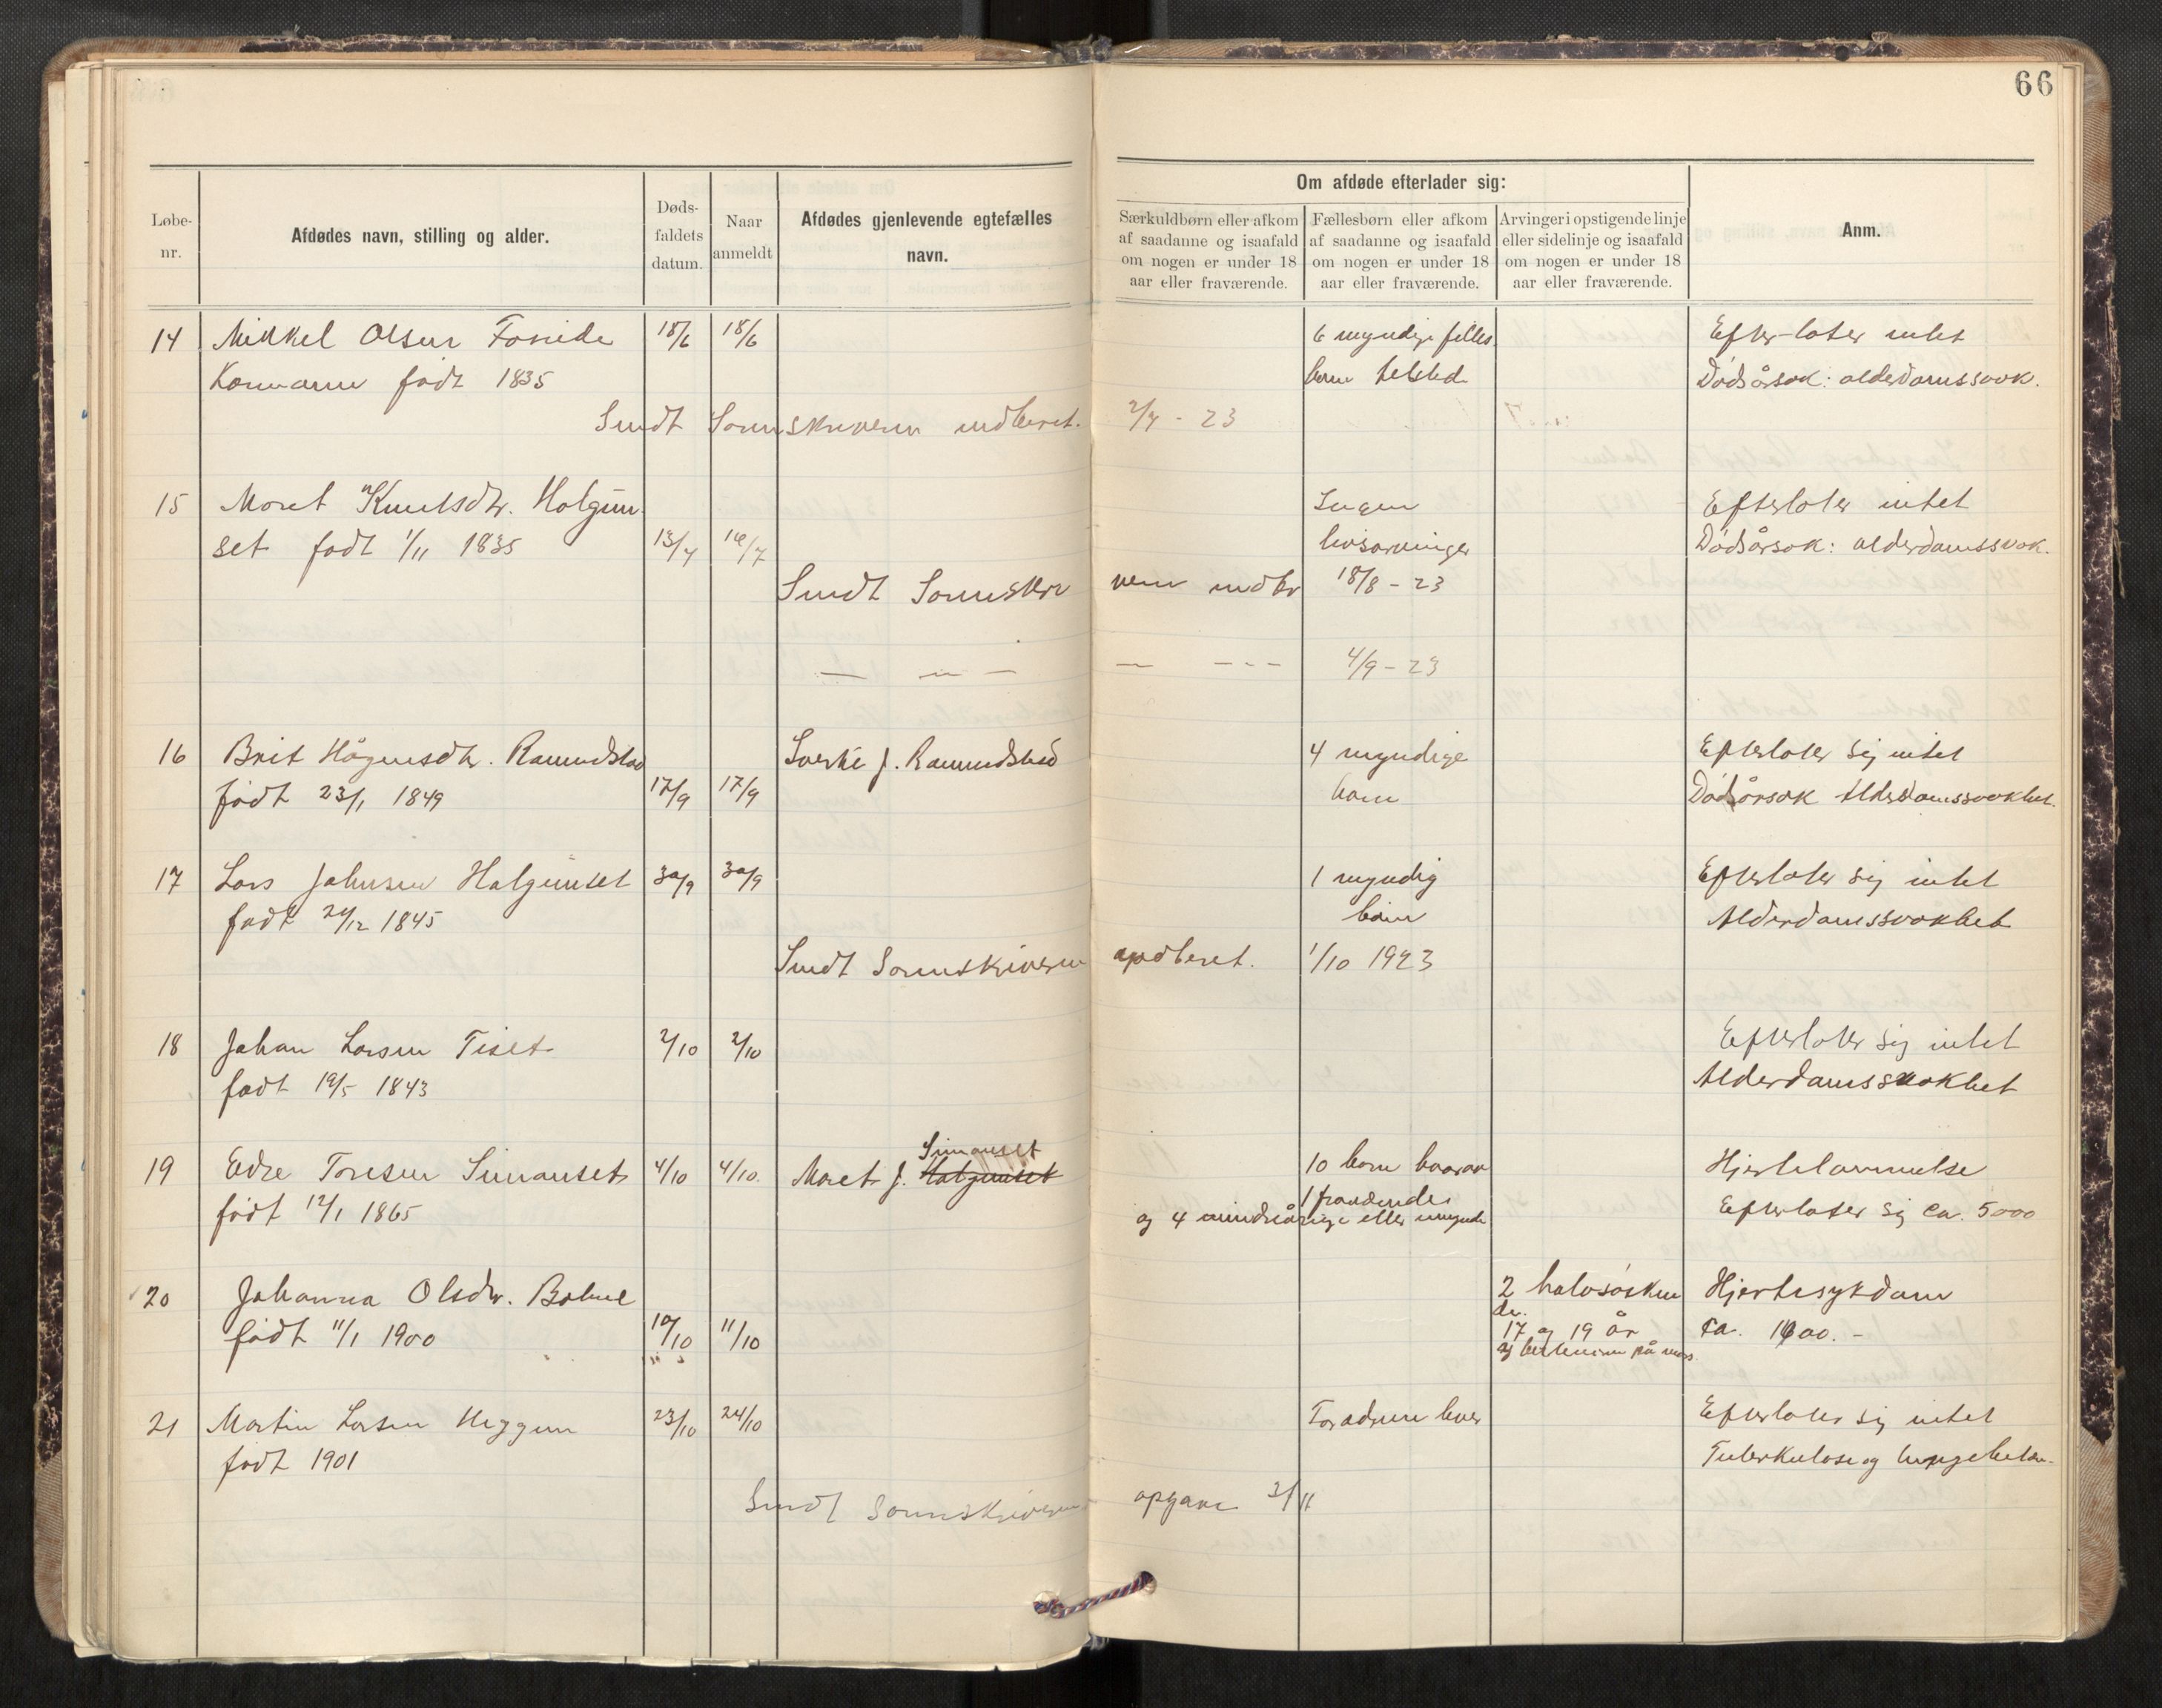 66
Løbe-
nr.
Afdødes navn, stilling og alder.
Døds-
faldets
datum.
Naar
anmeldt
Afdødes gjenlevende egtefælles
navn.
Om afdøde efterlader sig:
Særkuldbørn eller afkom
af saadanne og isaafald
om nogen er under 18
aar eller fraværende.
Fællesbørn eller afkom
af saadanne og isaafald
om nogen er under 18
aar eller fraværende.
Arvinger i opstigende linje
eller sidelinje og isaafald
om nogen er under 18
aar eller fraværende.
Anm.
14 Mikkel Olsen 18/6 18/6 6 myndige felles Efterlater intet
født 1835 børn Dødsårsak: alderdomssvak.
Sendt Sorenskriveren indberet. 2/7 - 23
15 Marit Knutsdtr. Halgun- Ingen Efterlater intet
set født 1/11 1835 13/7 16/7 livsarvinger Dødsårsak: alderdomssvak.
Sendt Sorenskri veren indbr 18/8 - 23
— — — — --- 4/9 - 23
16 Brit Hågensdtr. Ramundstad Sverke J. Ramundstad 4 myndige Efterlater sig intet
født 23/1 1849 17/9 17/9 barn Dødsårsak Alderdomssvakhet.
17 Lars Johnsen Halgunset 30/9 30/9 1 myndig Efterlater sig intet
født 24/12 1845 barn Alderdomssvakhet
Sendt Sorenskriveren opdberet. 1/10 1923
18 Johan Larsen Tiset 2/10 2/10 Efterlater sig intet
født 19/5 1843 Alderdomssvakhet
Simanset
19 Edre Toresen Simanset 4/10 4/10. Marit J. Halgunset 10 barn hvorav Hjertelammelse
født 12/1 1865 1 fraværende Efterlater sig ca. 5000
og 4 mindreårige eller umyndi
20 Johanna Olsdtr. Bolme 2 halvsøsken Hjertesykdom
de.
født 11/1 1900 10/10 11/10 17 og 19 år ca. 1600.-
21 Martin Larsen Heggem 23/10 24/10 Foreldrene lever Efterlater sig intet
født 1901 Tuberkulose og
Sendt Sorenskriveren opgave 3/11